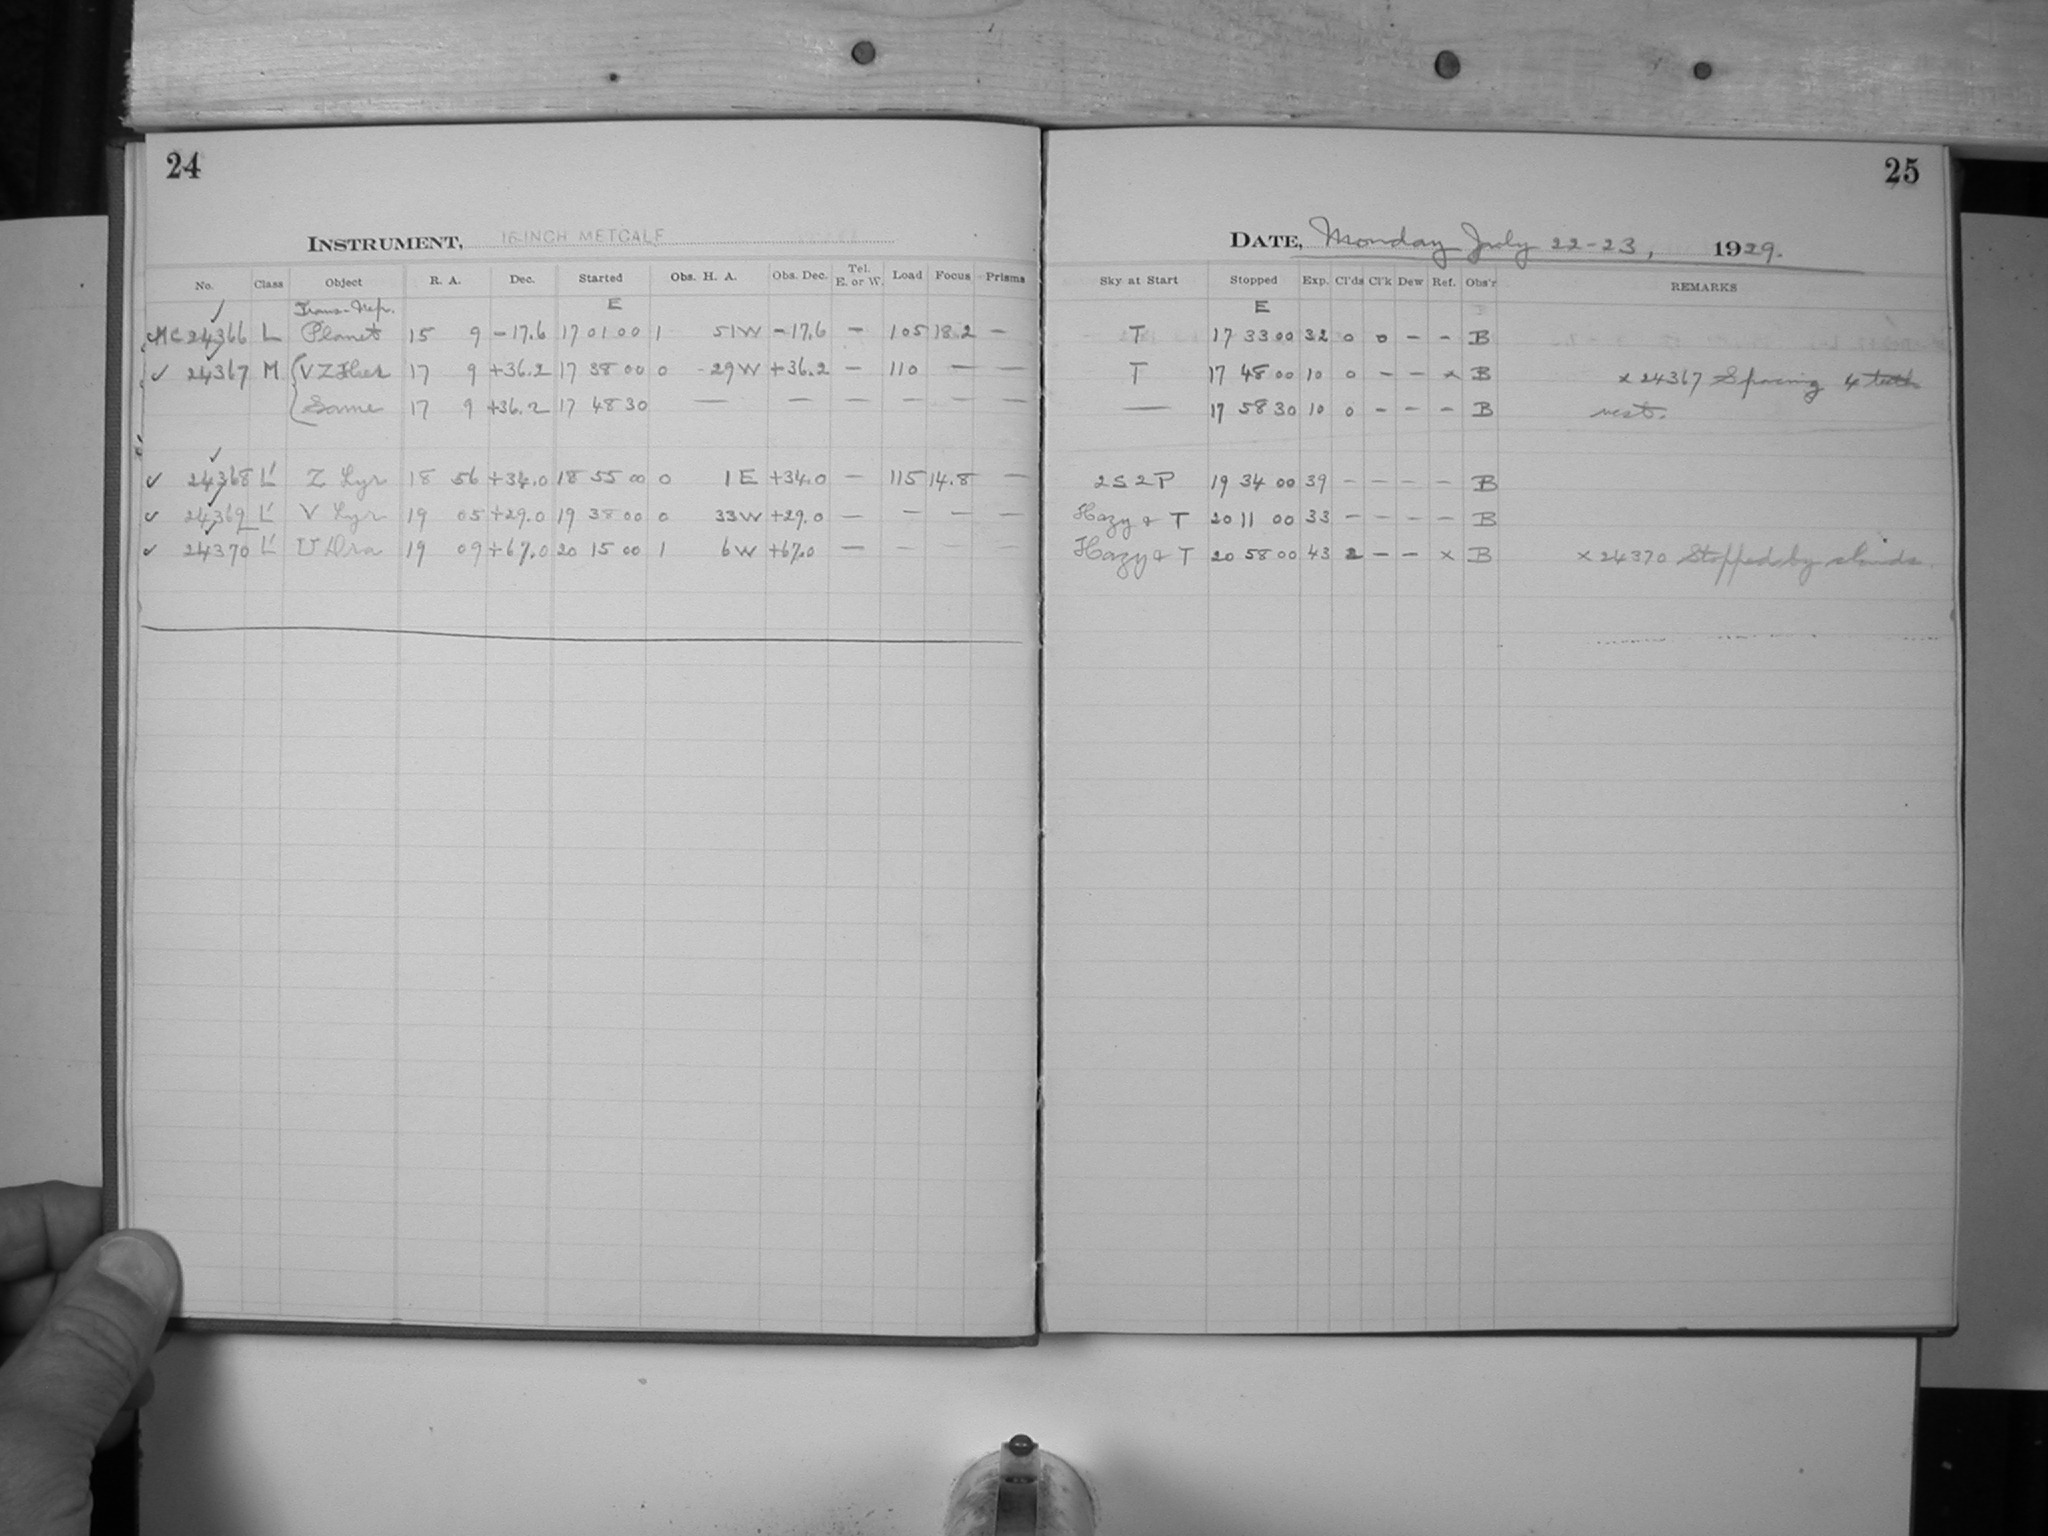 24
INSTRUMENT, 16-INCH METCALF
No. Class Object R. A. Dec. Started Obs. H. A. Obs. Dec. Tel. E. or W. Load Focus Prisms
Trans-Nep. E
MC 24366 L Planet 15 9 -17.6 17 01 00 1 51W -17.6 — 105 18.2 —
✓ 24367 M VZ Her 17 9 +36.2 17 38 00 0 29W +36.2 — 110 — —
Same 17 9 +36.2 17 48 30 — — — — — —
✓ 24368 L' Z Lyr 18 56 +34.0 18 55 00 0 1 E +34.0 — 115 14.8 —
✓ 24369 L' V Lyr 19 05 +29.0 19 38 00 0 33W +29.0 — — — —
✓ 24370 L' U Dra 19 09 +67.0 20 15 00 1 6W +67.0 — — — —
25
DATE, Monday July 22-23, 1929.
Sky at Start Stopped Exp. Cl'ds Cl'k Dew Ref. Obs'r REMARKS
E
T 17 33 00 32 0 0 — — B
T 17 48 00 10 0 — — x B x 24367 Spacing 4 teeth
— 17 58 30 10 0 — — — B west.
2S 2P 19 34 00 39 — — — — B
Hazy & T 20 11 00 33 — — — — B
Hazy & T 20 58 00 43 2 — — x B x 24370 Stopped by clouds.